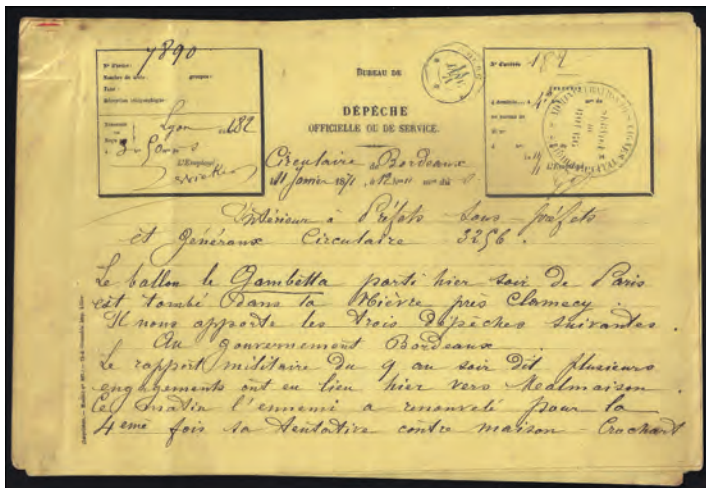 7890
N° d'ordre :
Nombre de mots : groupes :
Taxe :
Lyon 182
3. 50
L'Employé
BUREAU DE
DÉPÊCHE
OFFICIELLE OU DE SERVICE.
Circulaire de Bordeaux
11 Janvier 1871
N° d'arrivée 182
L'Intérieur à Préfets Sous-préfets
et Généraux Circulaire 3256.
Le ballon le Gambetta parti hier soir de Paris
est tombé dans la Nièvre près Clamecy.
Il nous apporte les trois dépêches suivantes.
Au gouvernement Bordeaux.
Le rapport militaire du 9 au soir dit plusieurs
engagements ont eu lieu hier vers Malmaison.
Ce matin l'ennemi a renouvelé pour la
4eme fois sa tentative contre maison-Crochard